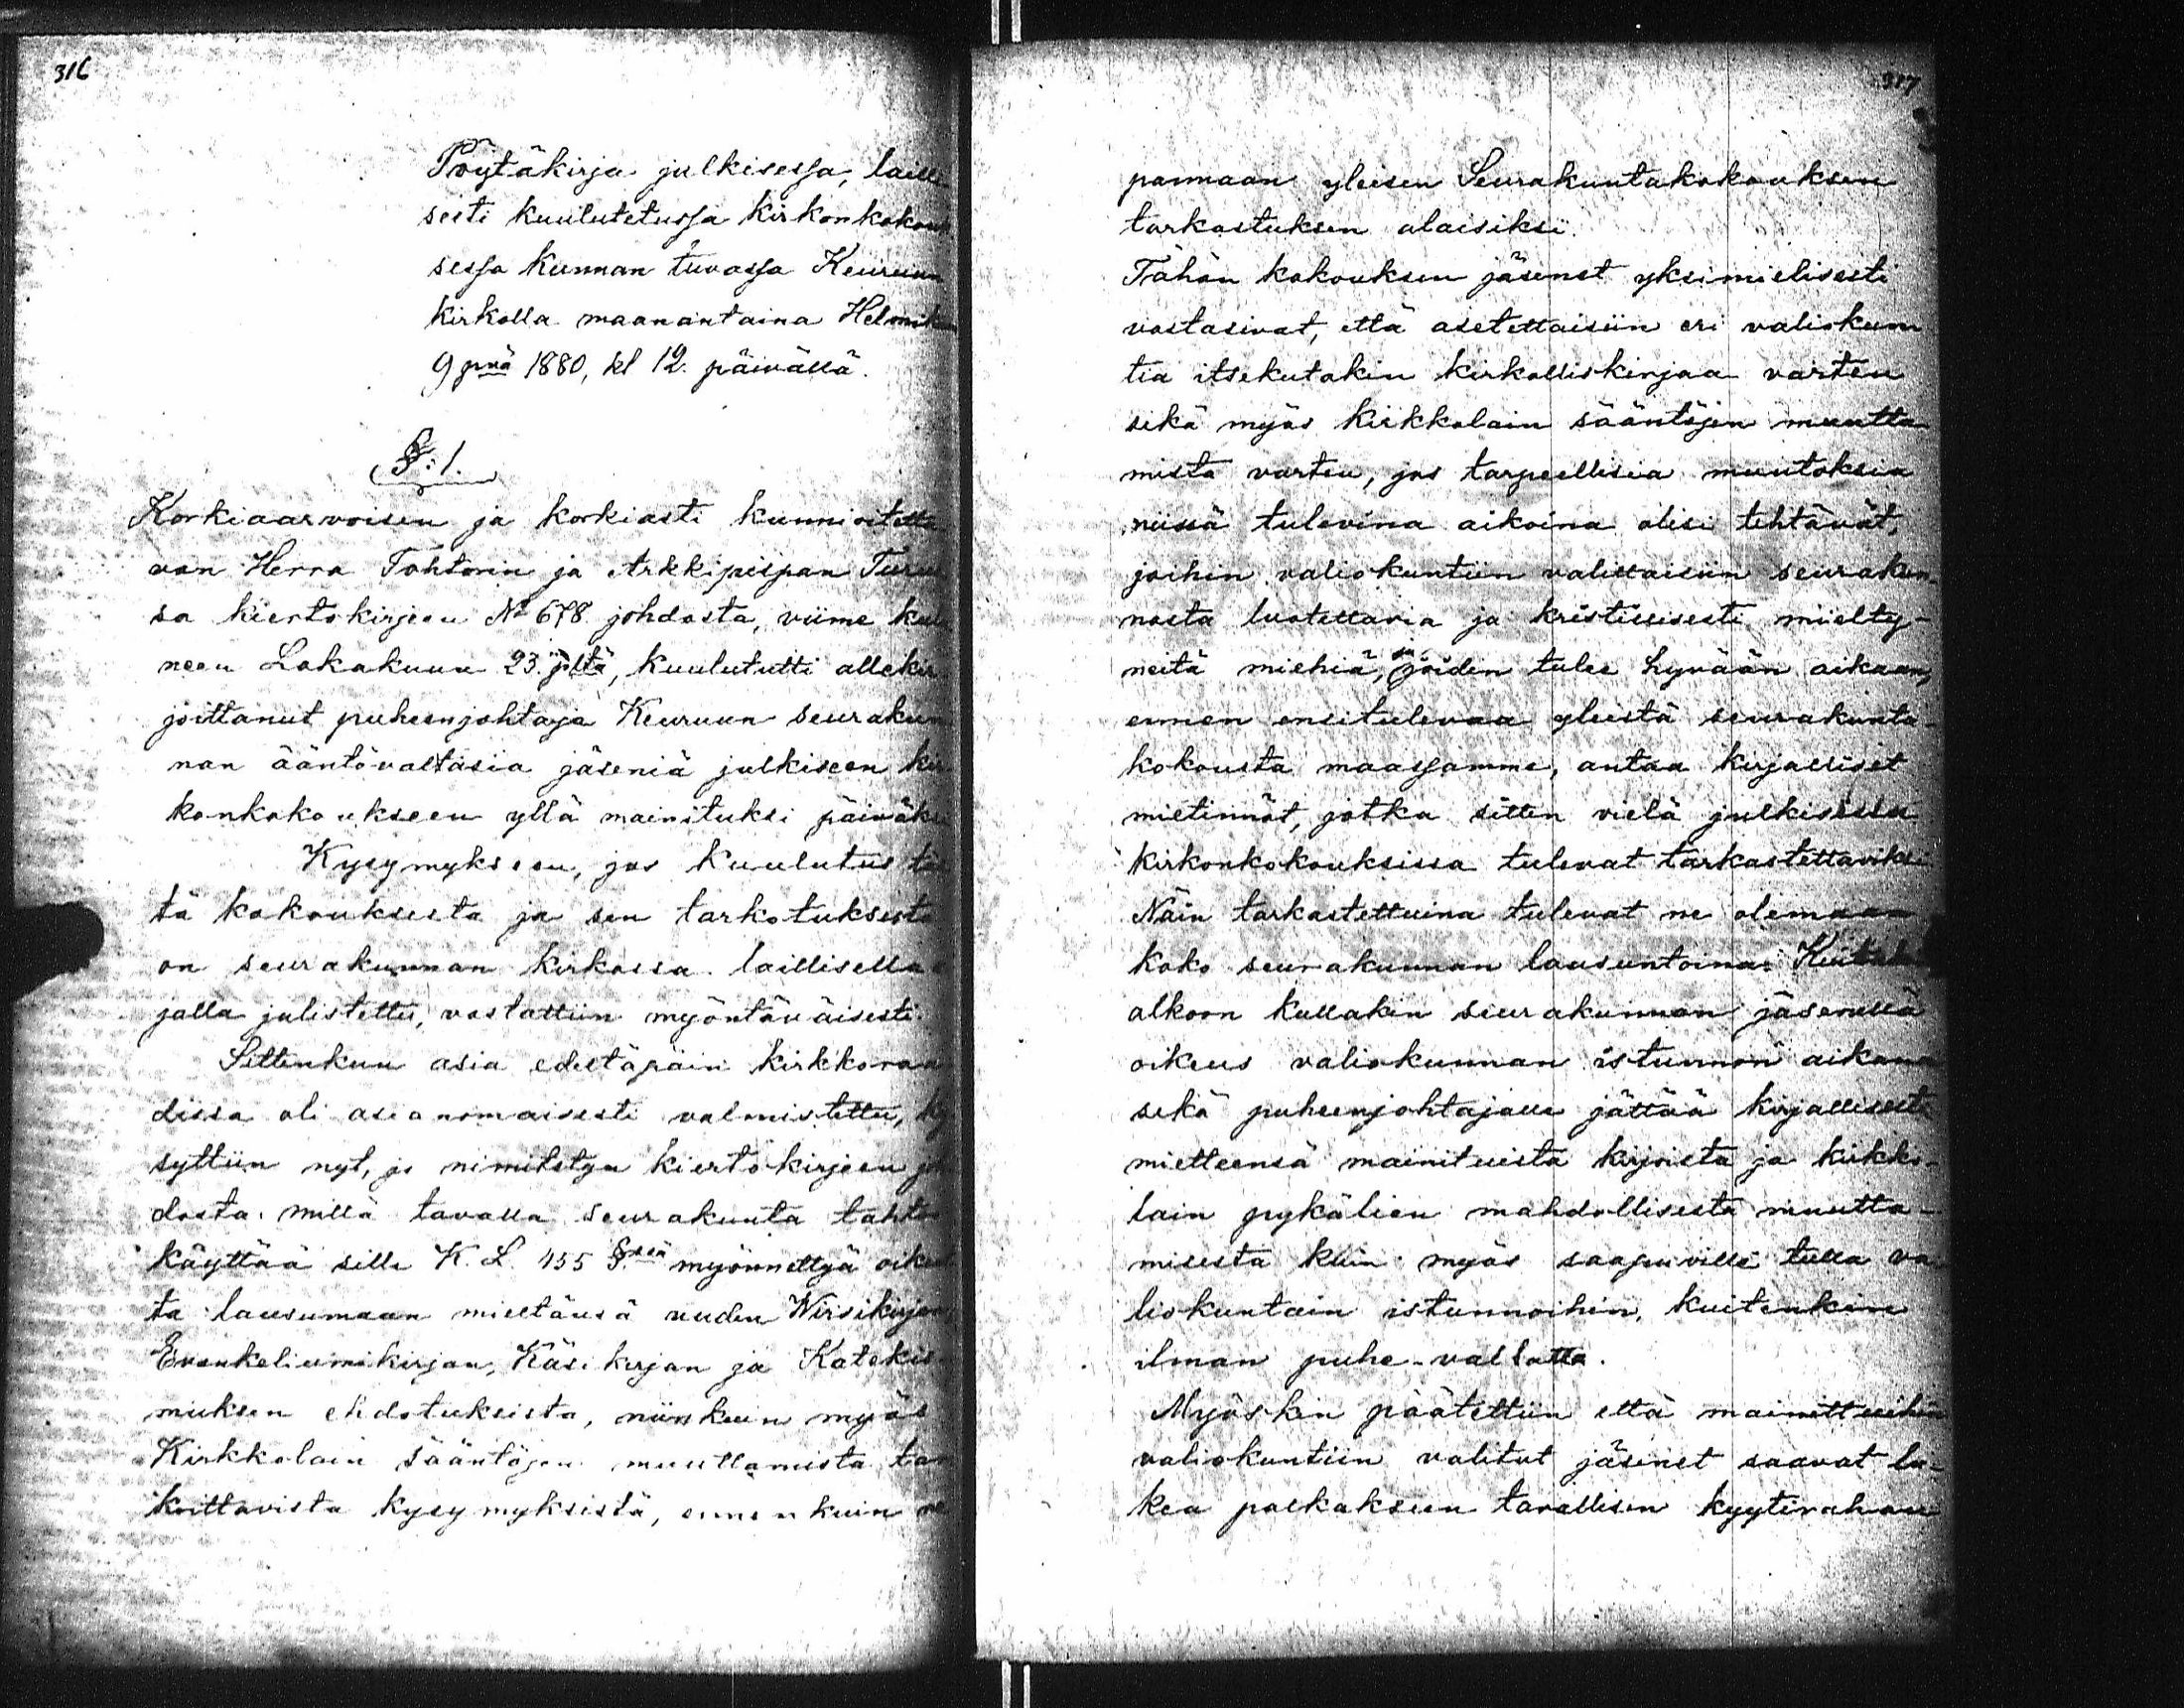 316
Pöytäkirja julkisessa, lailli
sesti kuulutetussa kirkonkokouk
sessa kunnan tuvassa Keuruun
kirkolla maanantaina Helmiku
9 pnä 1880, kl 12. päivällä.
§: 1.
Korkiaarvoisen ja korkiasti kunnioitetta
van Herra Tohtorin ja Arkkipiispan Turu
sa kiertokirjeen No 678 johdosta, viime kulu
neen Lokakuun 23. p:ltä, kuulututti alleki
joittanut puheenjohtaja Keuruun seurakun
nan ääntövaltasia jäseniä julkiseen kir
konkokoukseen yllä mainituksi päiväksi
Kysymykseen, jos kuulutus täs
tä kokouksesta ja sen tarkotuksesta
on seurakunnan kirkossa laillisella a
jalla julistettu, vastattiin myöntäväisesti.
Sittenkuu asia edeltäpäin kirkkoraa
dissa oli asianomaisesti valmistettu, ky
syttiin nyt, jo nimitetyn kiertokirjeen joh
dosta, millä tavalla seurakunta tahtoo
käyttää sille K. L. 455 §:ssä myönnettyä oikeut
ta lausumaan mieltänsä uuden Wirsikirjan,
Evankeliumikirjan, Käsikirjan ja Katekis
muksen ehdotuksista, niinkuin myös
Kirkkolain sääntöjen muuttamista tar
koittavista kysymyksistä, ennenkuin ne
317
pannaan yleisen Seurakuntakokouksen
tarkastuksen alaisiksi.
Tähän kokouksen jäsenet yksimielisesti
vastasivat, että asetettaisiin eri valiokun
tia itsekutakin kirkolliskirjaa varten
sekä myös kirkkolain sääntöjen muutta
mista varten, jos tarpeellisia muutoksia
niissä tulevina aikoina olisi tehtävät,
joihin valiokuntiin valittaisiin seurakun
nasta luotettavia ja kristillisesti mielty-
neitä miehiä, joiden tulee hyvään aikaan,
ennen ensitulevaa yleistä seurakunta-
kokousta maassamme, antaa kirjalliset
mietinnöt, jotka sitten vielä julkisessa
kirkonkokouksissa tulevat tarkastettaviksi.
Näin tarkastettuina tulevat ne olemaan
koko seurakunnan lausuntoina. Kuitenkin
olkoon kullakin seurakunnan jäsenellä
oikeus valiokunnan istunnon aikana
sekä puheenjohtajalle jättää kirjallisesti
mietteensä mainituista kirjoista ja kirkko-
lain pykälien mahdollisesta muutta-
misesta kuin myös saapuville tulla va-
liokuntain istunnoihin, kuitenkin
ilman puhe-vallatta.
Myöskin päätettiin että mainittuihin
valiokuntiin valitut jäsenet saavat lu-
kea palkakseen tavallisen kyytirahan